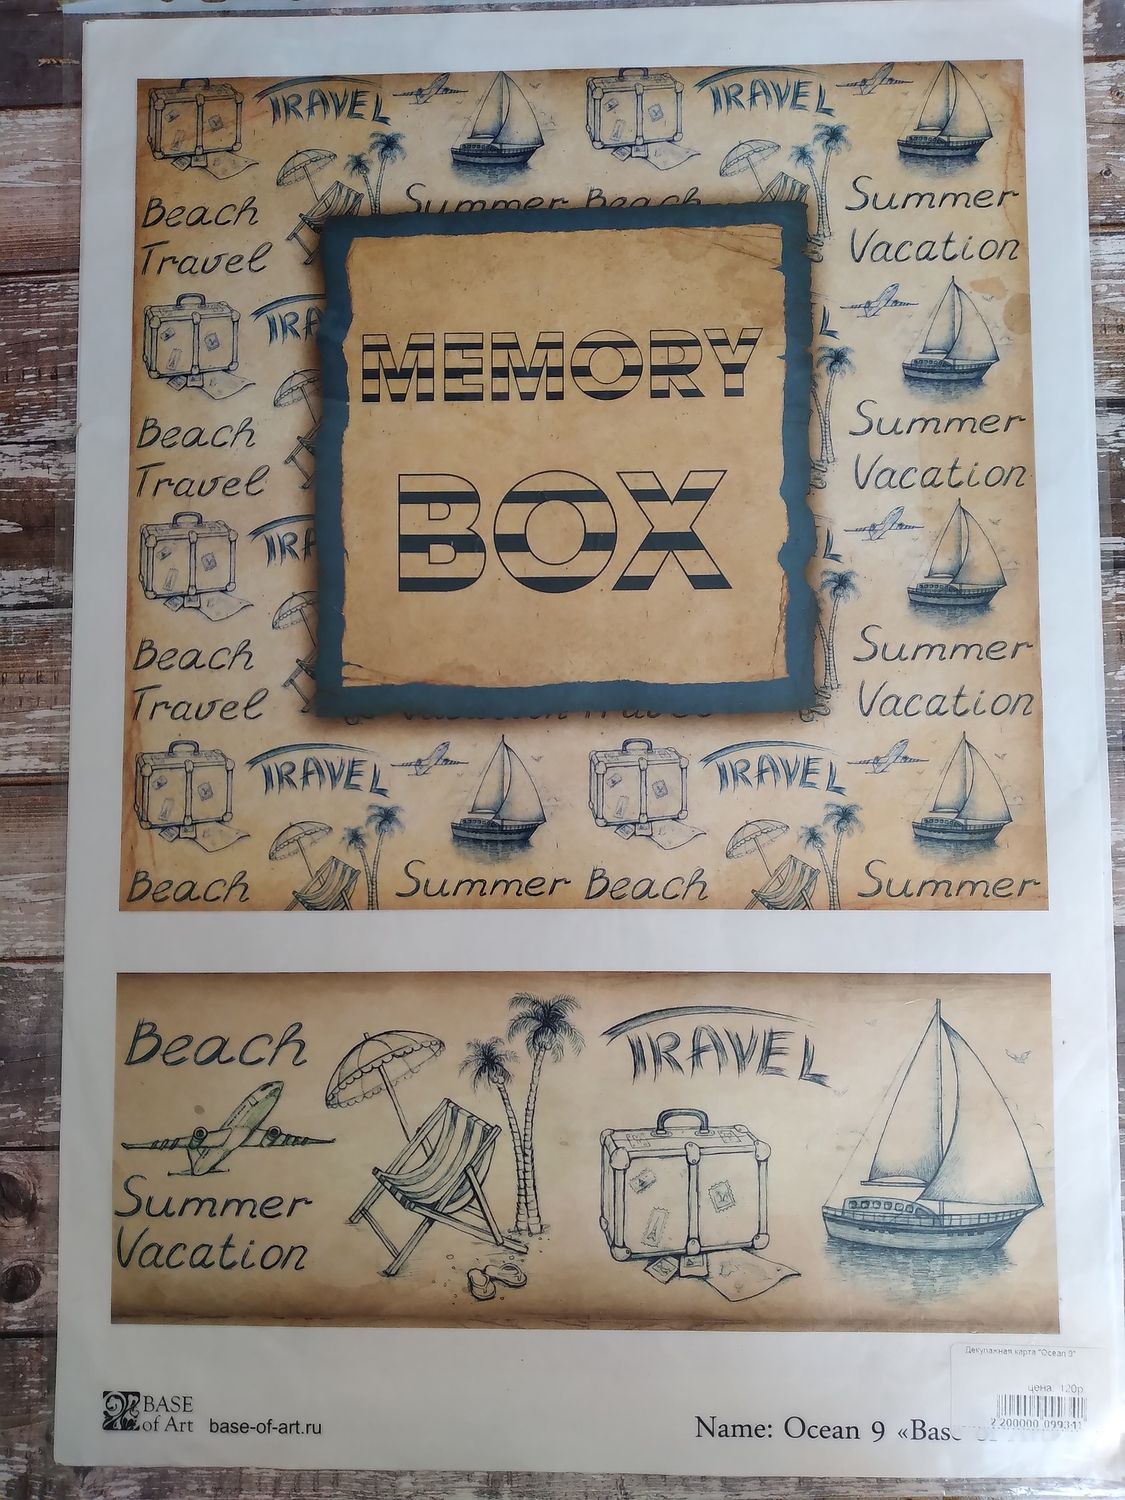 TRAVEL TRAVEL
Beach Summer Beach Summer
Travel Vacation
TRA
MEMORY
Beach Summer
Travel Vacation
BOX
TRA
Beach Summer
Travel Vacation
TRAVEL TRAVEL
Beach Summer Beach Summer
Beach
TRAVEL
Summer
Vacation
BASE
of Art base-of-art.ru
Name: Ocean 9 «Bas
Декупажная карта "Ocean 9"
цена: 120р
2 200000 099341